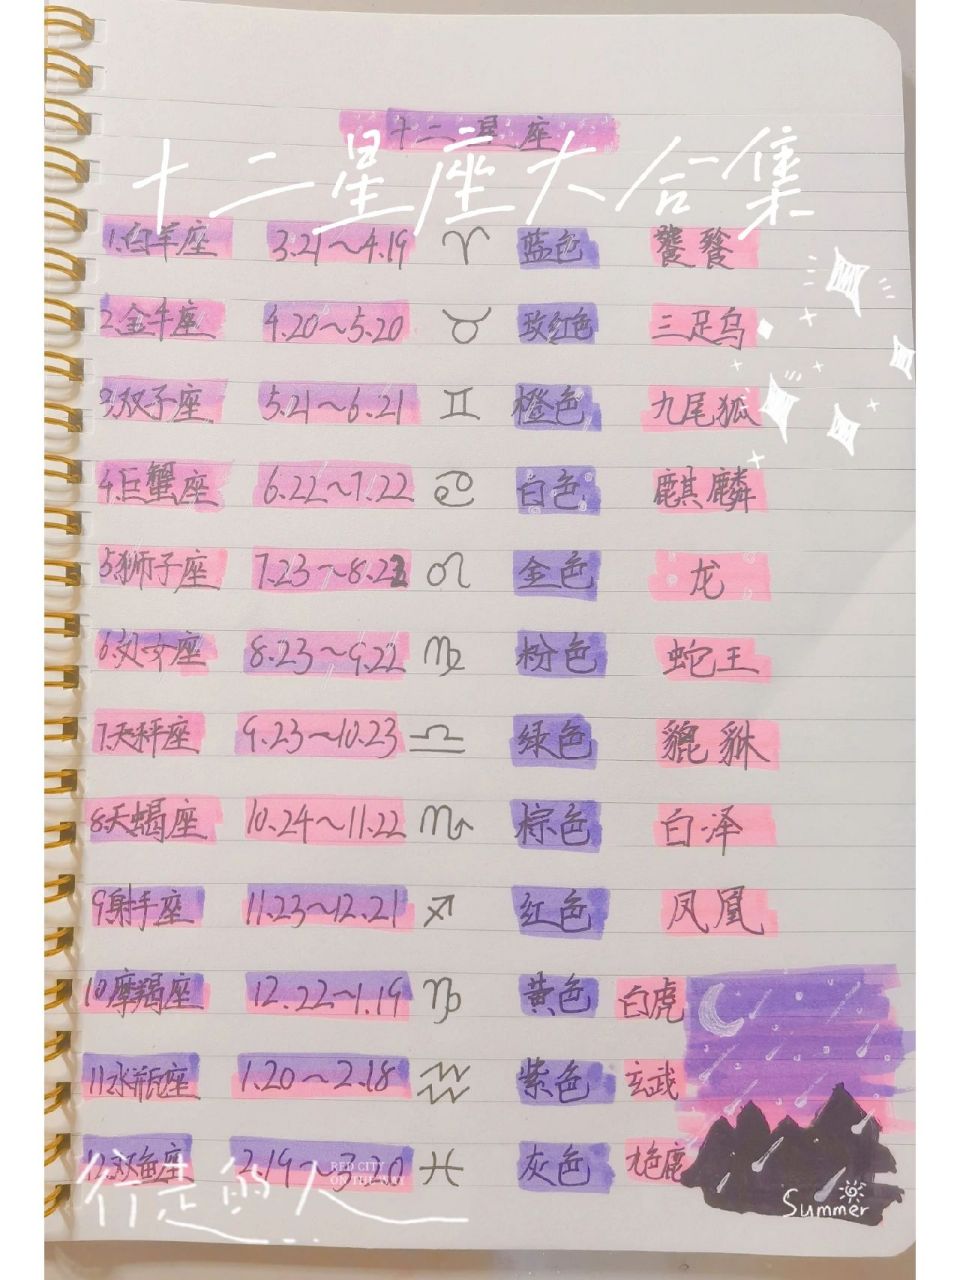 十二星座
十二星座大合集
1.白羊座 3.21～4.19 ♈ 蓝色 饕餮
2.金牛座 4.20～5.20 ♉ 玫红色 三足乌
3.双子座 5.21～6.21 ♊ 橙色 九尾狐
4.巨蟹座 6.22～7.22 ♋ 白色 麒麟
5.狮子座 7.23～8.22 ♌ 金色 龙
6.处女座 8.23～9.22 ♍ 粉色 蛇王
7.天秤座 9.23～10.23 ♎ 绿色 貔貅
8.天蝎座 10.24～11.22 ♏ 棕色 白泽
9.射手座 11.23～12.21 ♐ 红色 凤凰
10.摩羯座 12.22～1.19 ♑ 黄色 白虎
11.水瓶座 1.20～2.18 ♒ 紫色 玄武
12.双鱼座 2.19～3.20 ♓ 灰色 鹿
行走的人
RED CITY
ON THE WAY
Summer